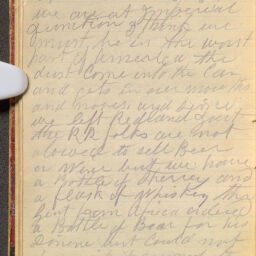 we are at Imperial
Junction I think we
must be in the worst
part of America the
dust come into the Car
and gets in our mouths
and noses and
we left Redland
the RR folks are not
alowed to sell Beer
or Wine but we have
a bottle of Sherrey and
a flask of Whiskey the
Gent from Africa ordered
a Bottle of Bear for his
but could not